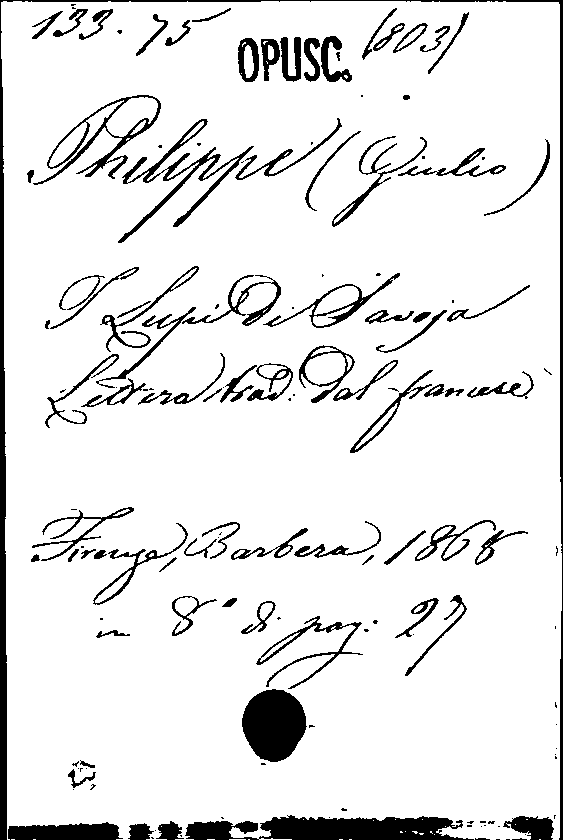 133.75 (803)
OPUSC.
Philippe (Giulio)
I Lupi di Savoja
Lettera trad. dal francese
Firenze, Barbera, 1868
in 8° di pag: 27